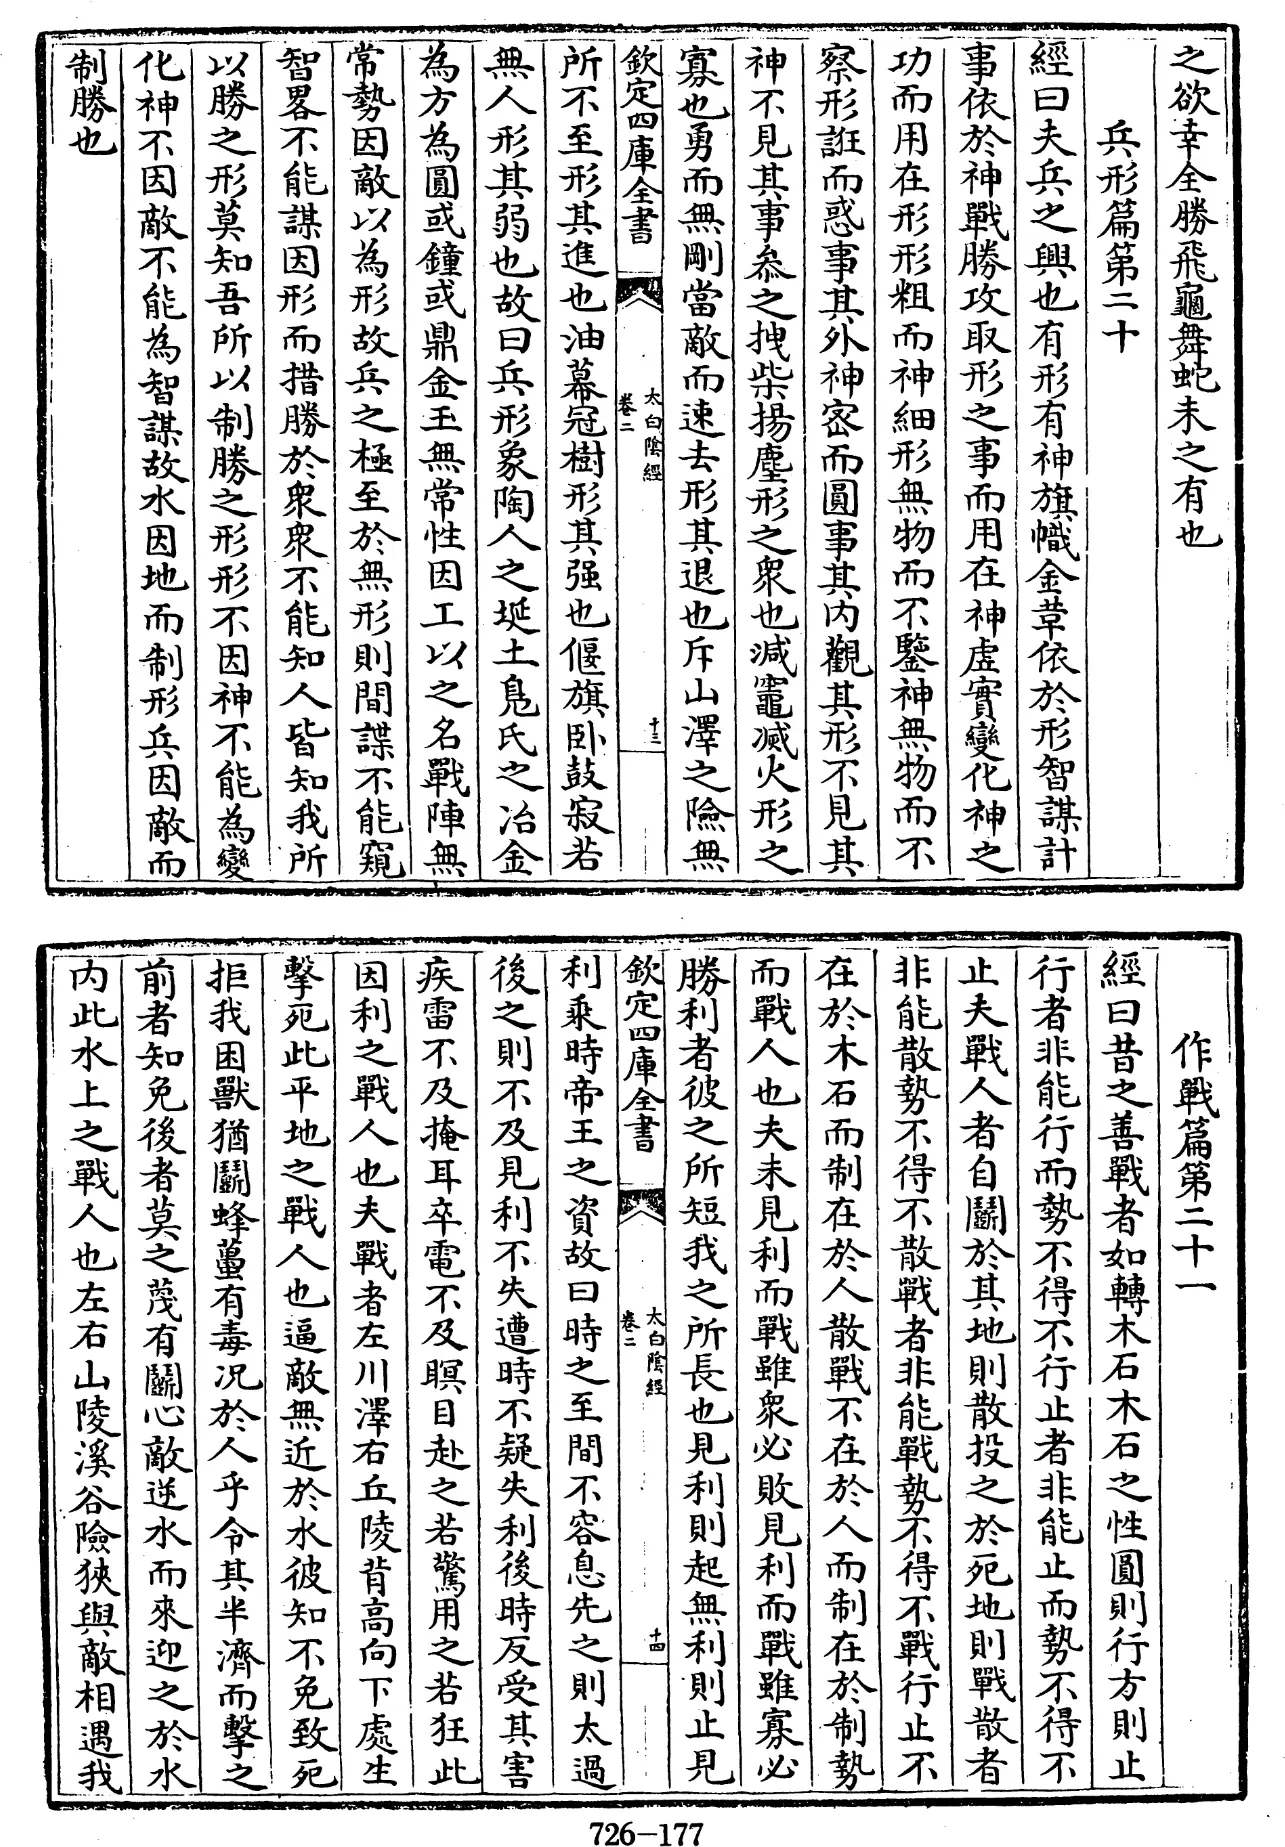 之欲幸全勝飛龜舞蛇未之有也
兵形篇第二十
經曰夫兵之興也有形有神旗幟金革依於形智謀計
事依於神戰勝攻取形之事而用在神虛實變化神之
功而用在形形粗而神細形無物而不鑒神無物而不
察形誑而惑事其外神密而圓事其内觀其形不見其
神不見其事叅之拽柴揚塵形之衆也減竈滅火形之
寡也勇而無剛當敵而速去形其退也斥山澤之險無
欽定四庫全書
太白陰經
卷二
十三
所不至形其進也油幕冠樹形其强也偃旗卧鼓寂若
無人形其弱也故曰兵形象陶人之埏土鳬氏之冶金
為方為圓或鐘或鼎金玉無常性因工以之名戰陣無
常勢因敵以為形故兵之極至於無形則間諜不能窺
智畧不能謀因形而措勝於衆衆不能知人皆知我所
以勝之形莫知吾所以制勝之形形不因神不能為變
化神不因敵不能為智謀故水因地而制形兵因敵而
制勝也
作戰篇第二十一
經曰昔之善戰者如轉木石木石之性圓則行方則止
行者非能行而勢不得不行止者非能止而勢不得不
止夫戰人者自鬭於其地則散投之於死地則戰散者
非能散勢不得不散戰者非能戰勢不得不戰行止不
在於木石而制在於人散戰不在於人而制在於制勢
而戰人也夫未見利而戰雖衆必敗見利而戰雖寡必
勝利者彼之所短我之所長也見利則起無利則止見
欽定四庫全書
太白陰經
卷二
十四
利乘時帝王之資故曰時之至間不容息先之則太過
後之則不及見利不失遭時不疑失利後時反受其害
疾雷不及掩耳卒電不及瞑目赴之若驚用之若狂此
因利之戰人也夫戰者左川澤右丘陵背高向下處生
擊死此平地之戰人也逼敵無近於水彼知不免致死
拒我困獸猶鬭蜂蠆有毒況於人乎令其半濟而擊之
前者知免後者莫之蔑有鬭心敵逆水而來迎之於水
内此水上之戰人也左右山陵溪谷險狹與敵相遇我
726-177